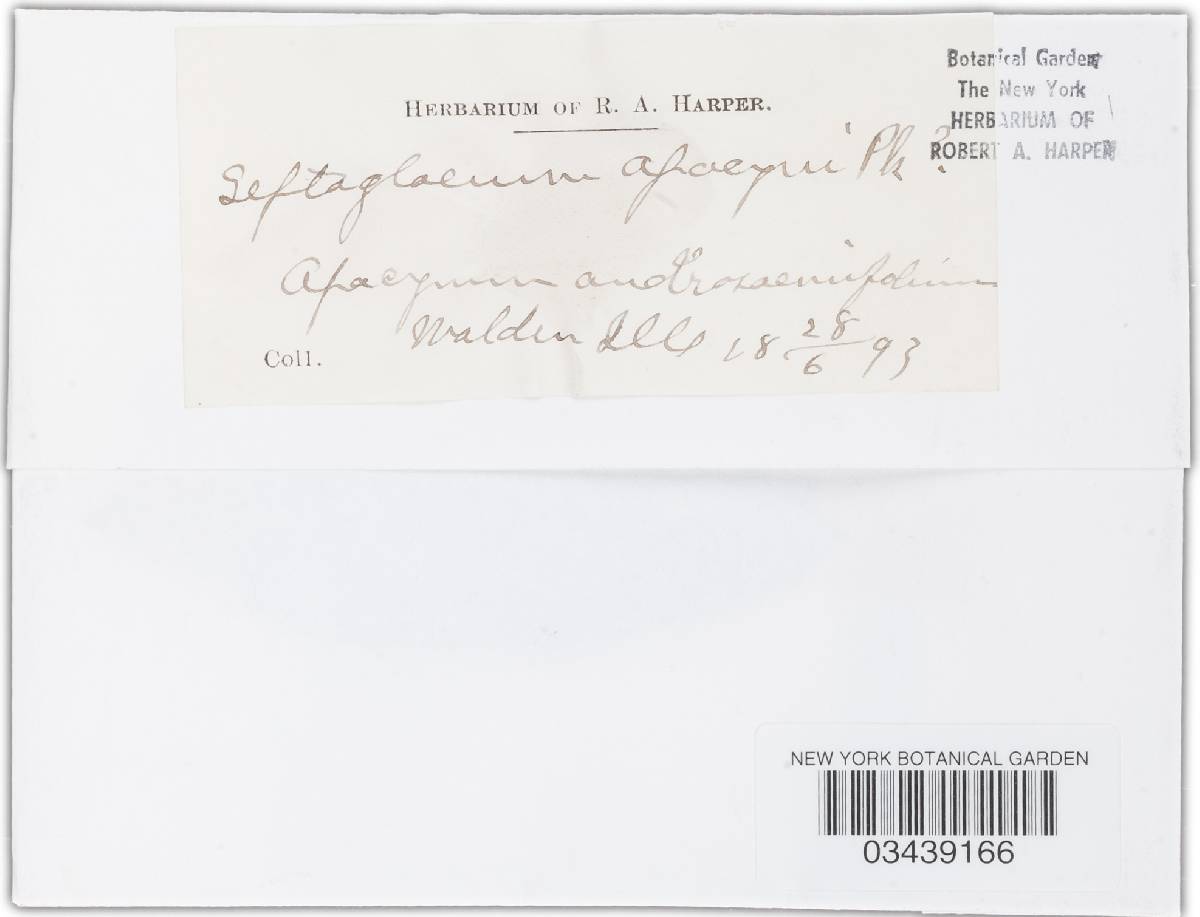 HERBARIUM OF R. A. HARPER.
Septogloeum apocyni Pk?
Apocynum androsaemifolium
Walden Ills 18 28/6 93
Coll.
Botanical Garden
The New York
HERBARIUM OF
ROBERT A. HARPER
NEW YORK BOTANICAL GARDEN
03439166